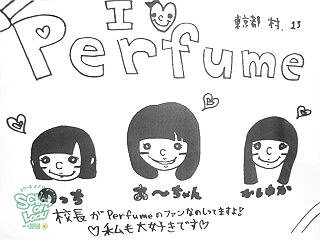 I ♡
東京都 村. 13
Perfume
のっち
あ〜ちゃん
かしゆか
校長がPerfumeのファンなのしてますよ!
♡私も大好きです♡